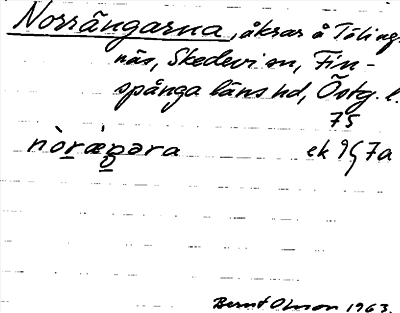 Norrängarna, åkrar å Tölings-
näs, Skedevi sn, Fin-
spånga läns hd, Östg. l.
75
nòræ̀ŋəra ek 9G7a
Bernt Olsson 1963.